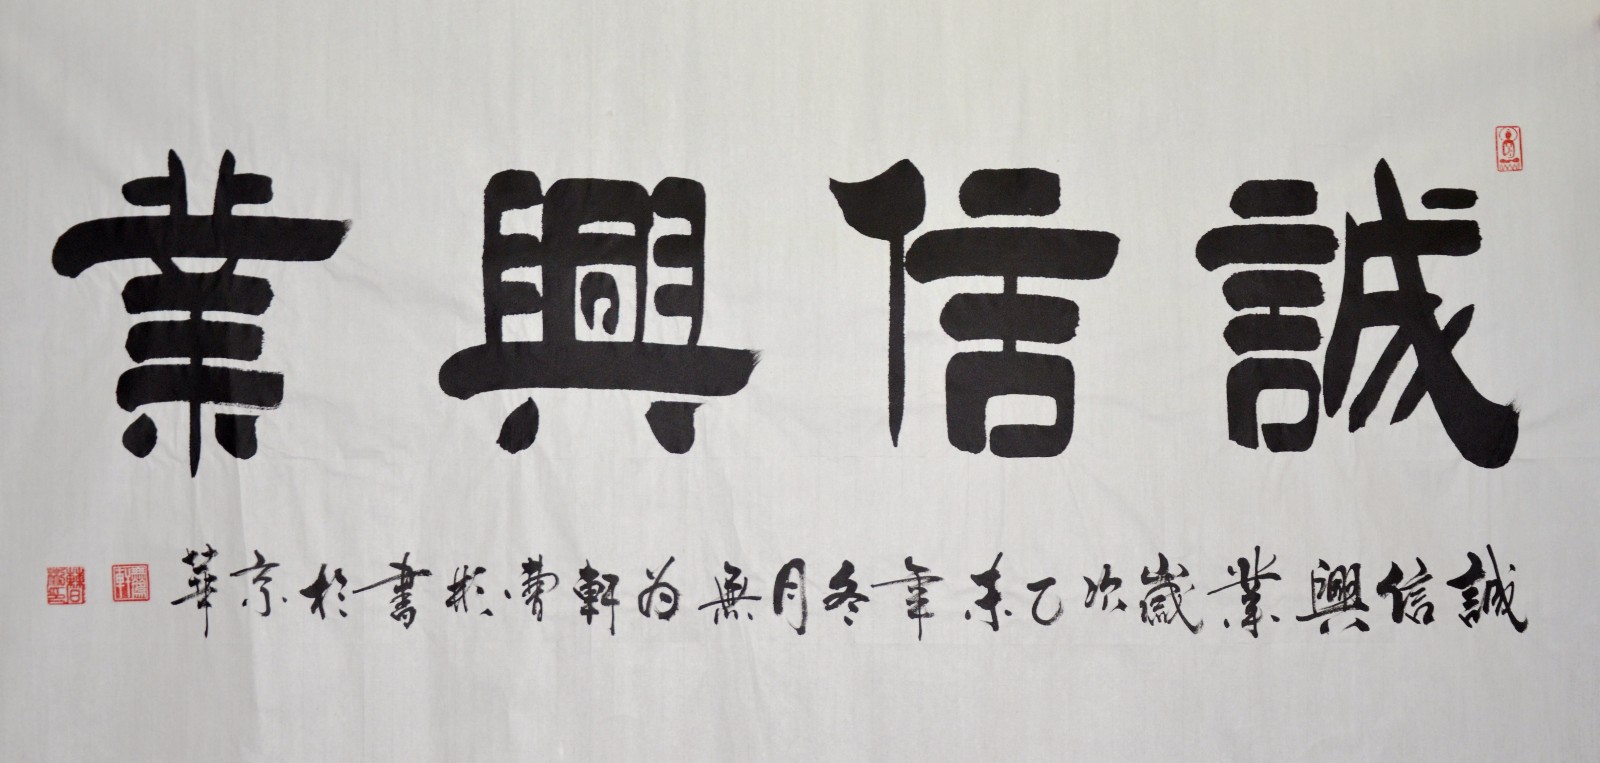 誠信興業
誠信興業歲次乙未年冬月無為軒曹彬書於京華